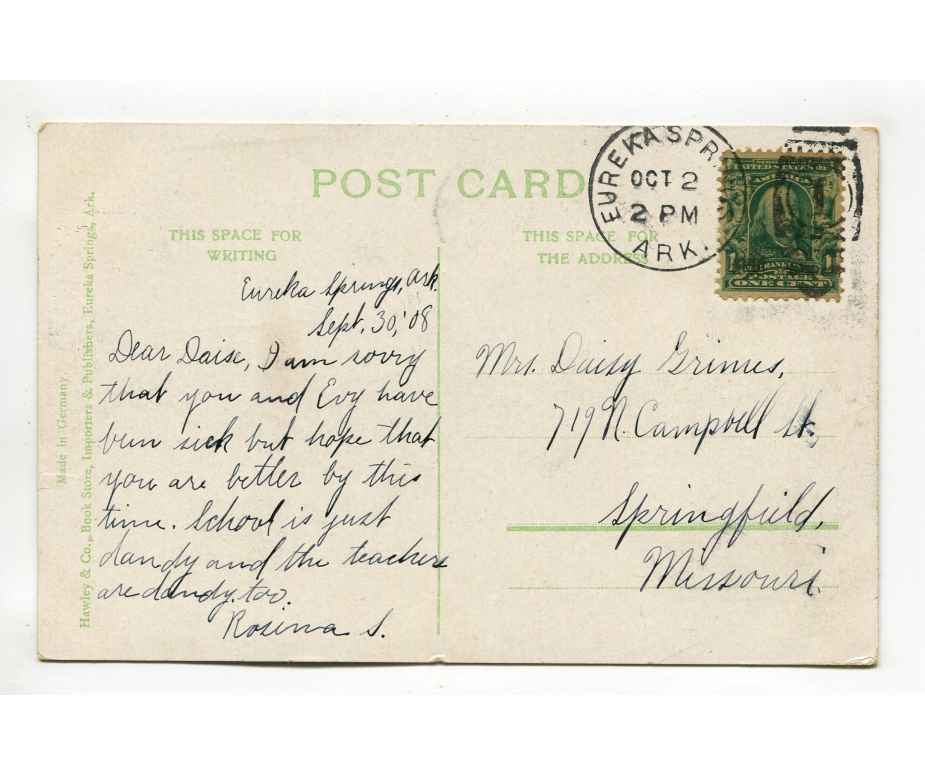 POST CARD
THIS SPACE FOR
WRITING
THIS SPACE FOR
THE ADDRESS
EUREKA SPR
OCT 2
2 PM
ARK.
UNITED STATES OF
AMERICA
ONE CENT
Eureka Springs, Ark.
Sept, 30,' 08
Dear Daise, I am sorry
that you and Evy have
been sick but hope that
you are better by this
time. School is just
dandy and the teachers
are dandy too.
Rosinna S.
Mrs. Daisy Grimes,
719 N. Campbell St,
Springfield,
Missouri
Made in Germany
Hawley & Co., Book Store, Importers & Publishers, Eureka Springs, Ark.